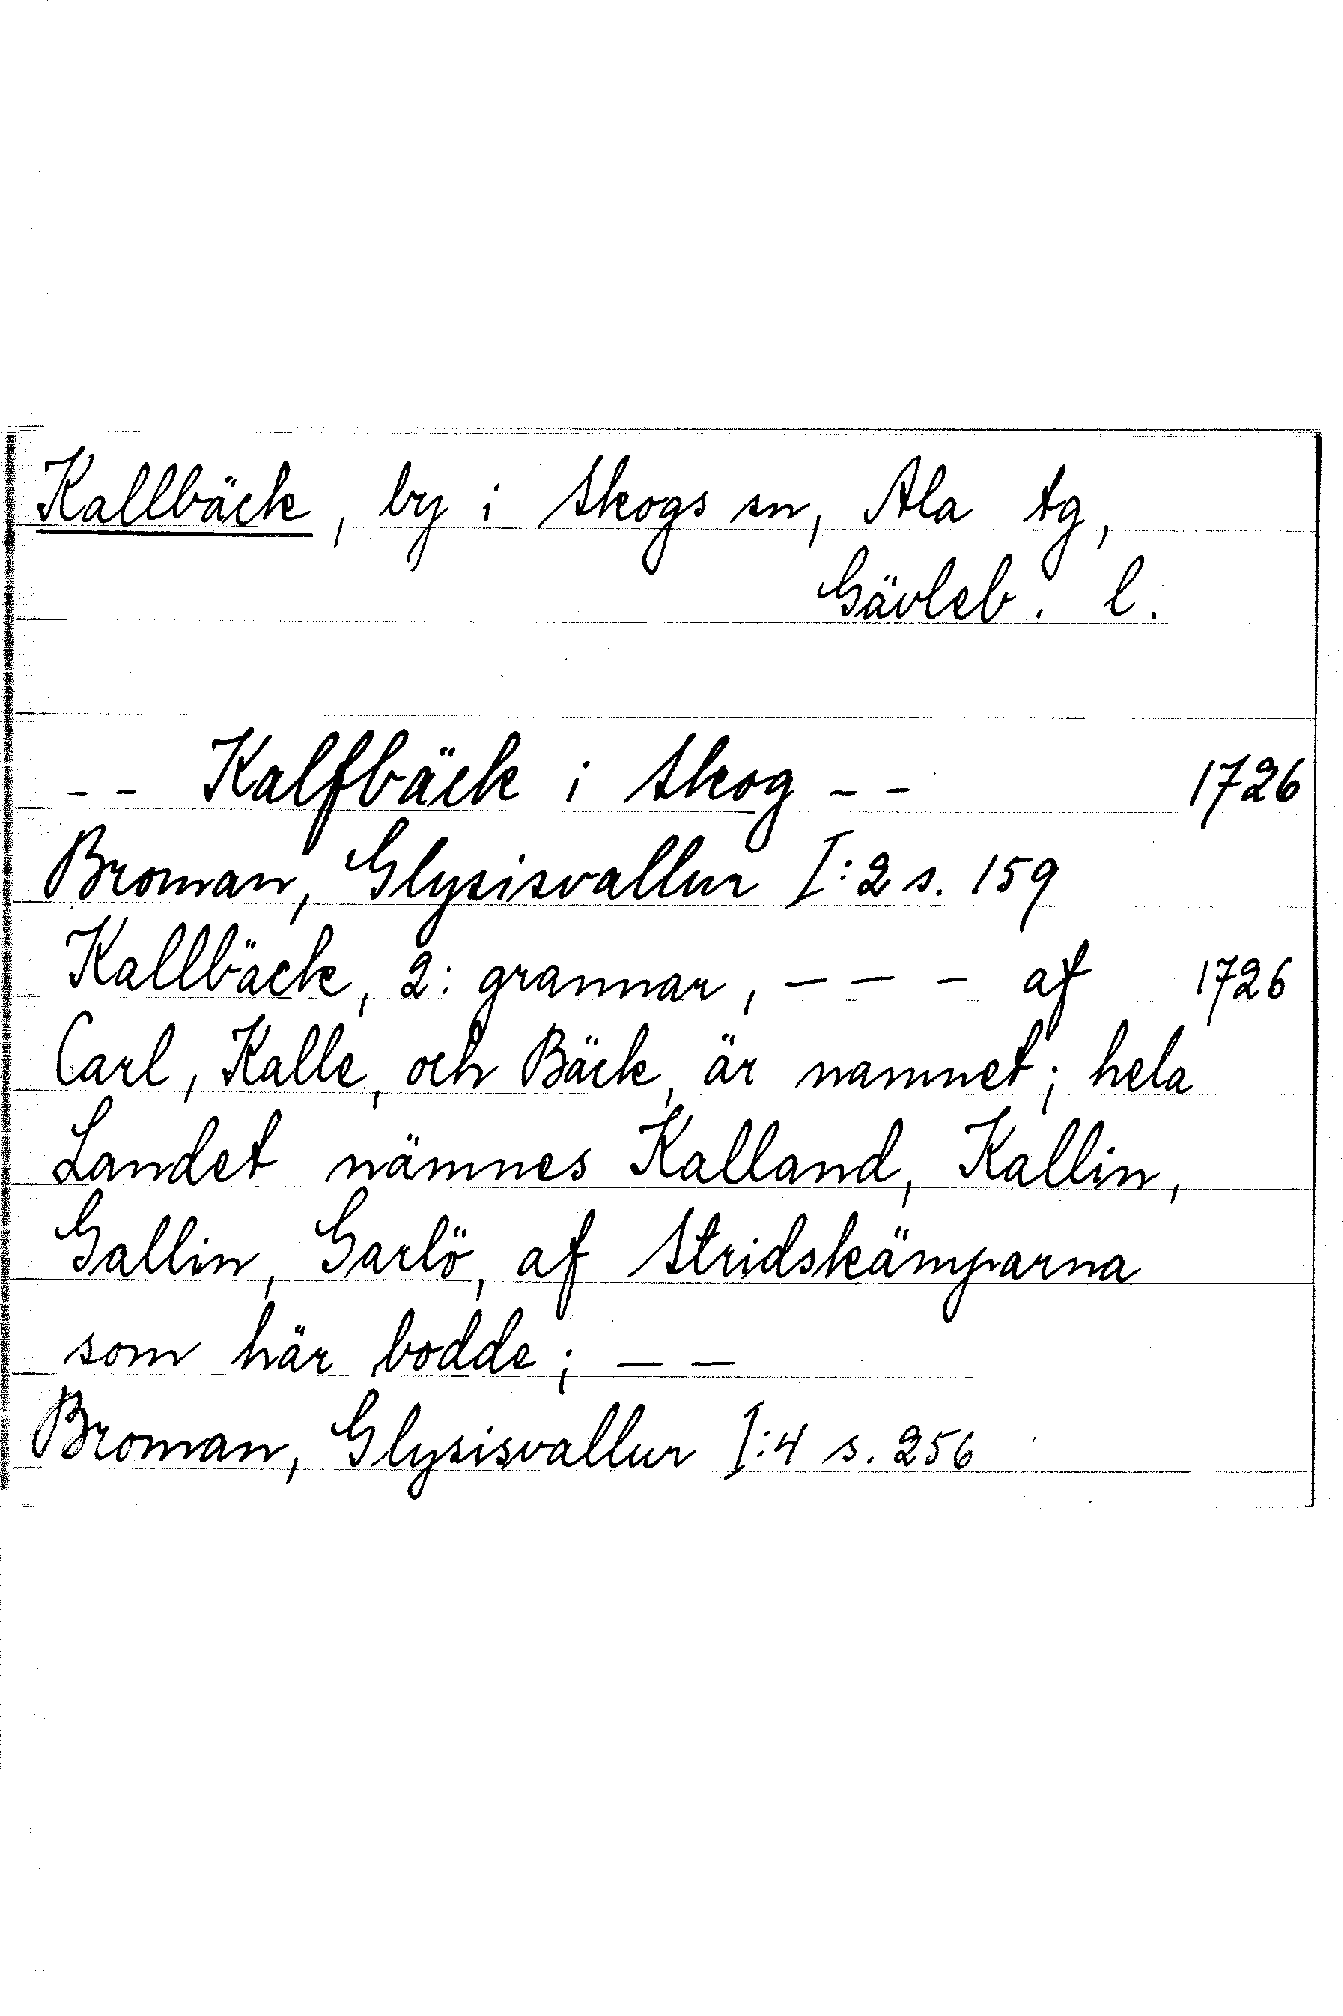 Kallbäck, by i Skogs sn, Ala tg,
Gävleb. l.
-- Kalfbäck i Skog -- 1726
Broman, Glysisvallur I:2 s. 159
Kallbäck, 2: grannar, --- af 1726
Carl, Kalle, och Bäck, är namnet; hela
Landet nämnes Kalland, Kallin,
Gallin, Garlö, af Stridskämparna
som här bodde; --
Broman, Glysisvallur I:4 s. 256